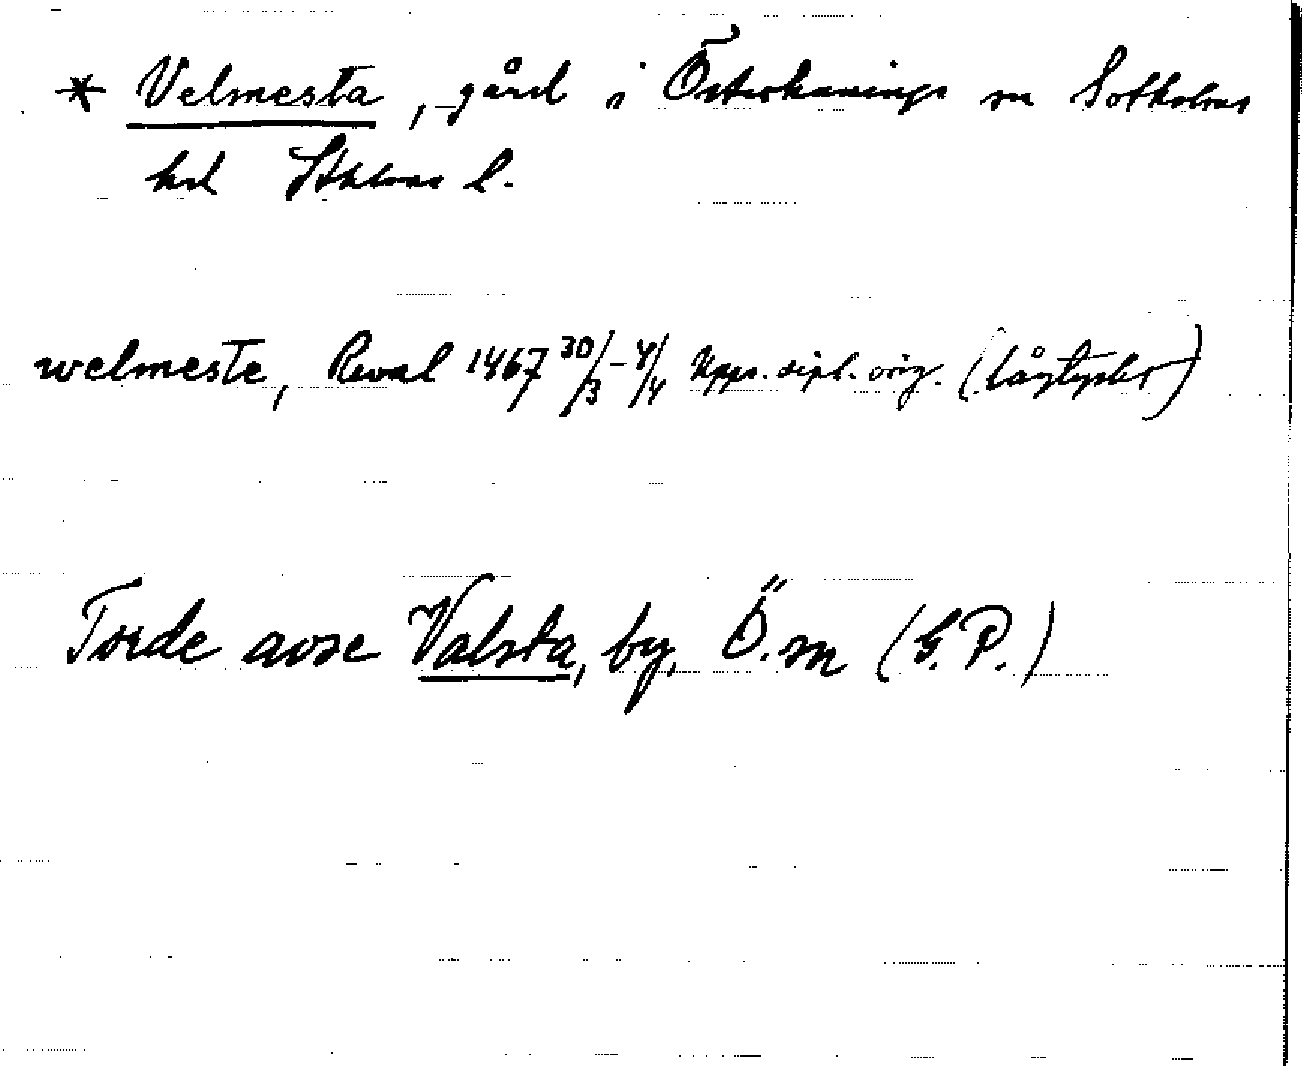 * Velmesta, gård i Österhanings sn Sotholms
hd Sthlms l.
welmeste, Reval 1467 30/3–4/4 Upps. dipl. orig. (lågtyska)
Torde avse Valsta, by, Ö. sn (G.P.)